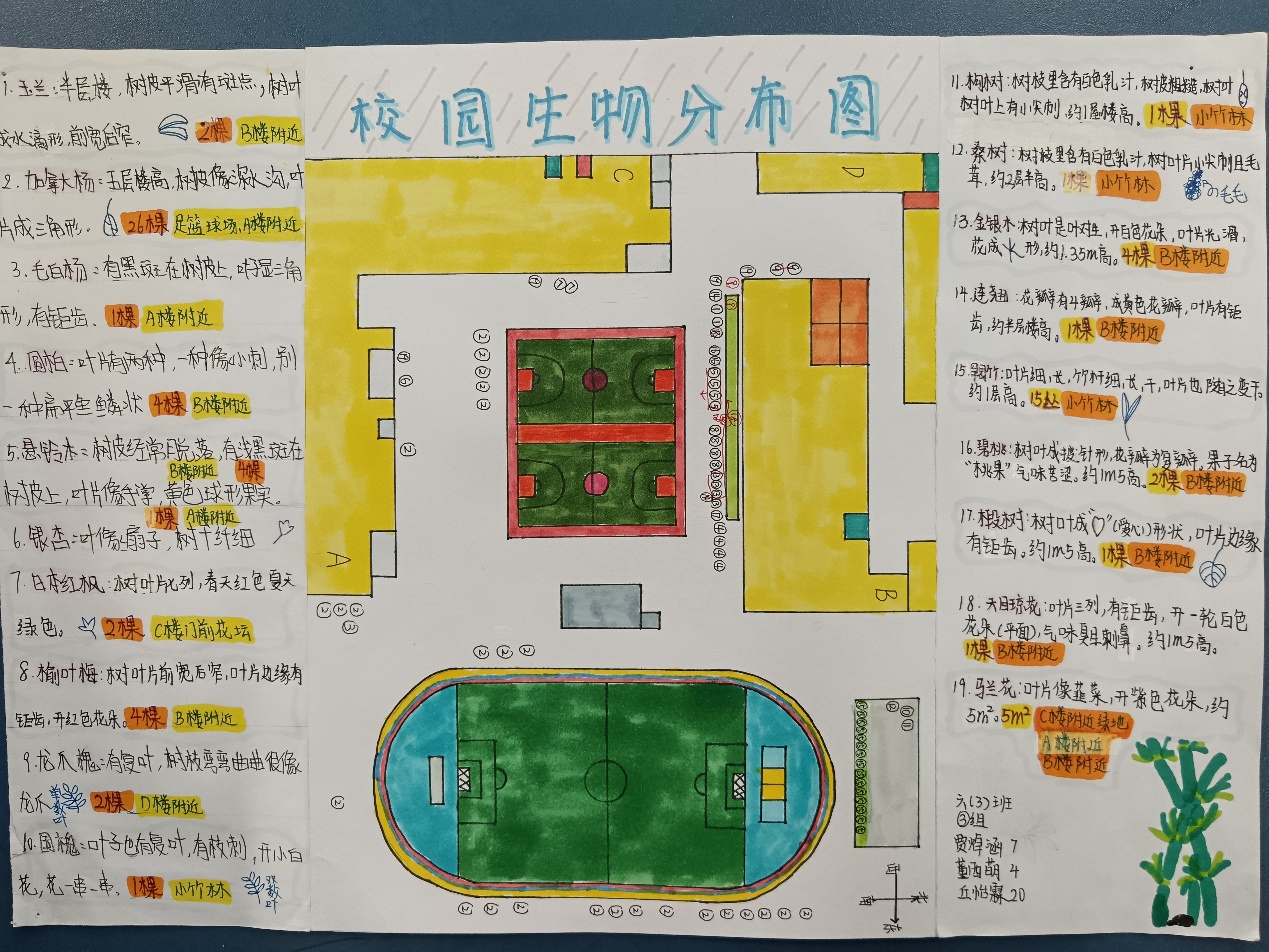 校园生物分布图
1.玉兰:半层楼,树皮平滑有斑点,树叶
成水滴形,前宽后窄。 2棵 B楼附近
2.加拿大杨:五层楼高,树皮像深水沟,叶
片成三角形。 26棵 足篮球场,A楼附近
3.毛白杨:有黑斑在树皮上,叶显三角
形,有锯齿、 1棵 A楼附近
4.圆柏:叶片有两种,一种像小刺,别
一种扁平呈鳞状 4棵 B楼附近
5.悬铃木:树皮经常脱落,有浅黑斑在
B楼附近 4棵
树皮上,叶片像手掌,黄色球形果实。
1棵 A楼附近
6.银杏:叶像扇子,树干纤细
7.日本红枫:树叶片七列,春天红色夏天
绿色。 2棵 C楼门前花坛
8.榆叶梅:树叶片前宽后窄,叶片边缘有
锯齿,开红色花朵。4棵 B楼附近
9.龙爪槐:有复叶,树枝弯弯曲曲很像
龙爪 2棵 D楼附近
10.国槐:叶子也有复叶,有枝刺,开小白
花,花一串一串、 1棵 小竹林
C
D
A
B
西
南
东
11.构树:树枝里含有白色乳汁,树皮粗糙,树叶
树叶上有小尖刺,约1层楼高。 1棵 小竹林
12.桑树:树枝里含有白色乳汁,树叶片小尖刺且毛
茸,约2层半高。 1棵 小竹林
毛毛
13.金银木:树叶是叶对生,开白色花朵,叶片光滑,
花成 形,约1.35m高。4棵 B楼附近
14.连翘:花瓣有4瓣,成黄色花瓣,叶片有锯
齿,约半层楼高。 1棵 B楼附近
15.早园竹:叶片细,长,竹杆细,长,干,叶片也随之变干。
约1层高。 15丛 小竹林
16.碧桃:树叶成披针形,花瓣为复瓣。果子名为
“桃果”气味苦涩。约1m5高。2棵 B楼附近
17.椴树:树叶成“♡”(爱心)形状,叶片边缘
有锯齿。约1m5高。 1棵 B楼附近
18.天目琼花:叶片三列,有锯齿,开一轮白色
花朵(平面),气味臭且刺鼻。约1m5高。
1棵 B楼附近
19.马兰花:叶片像韭菜,开紫色花朵,约
5m²。5m² C楼附近绿地
A楼附近
B楼附近
六(3)班
③组
贾焯涵 7
董西萌 4
丘怡霖 20